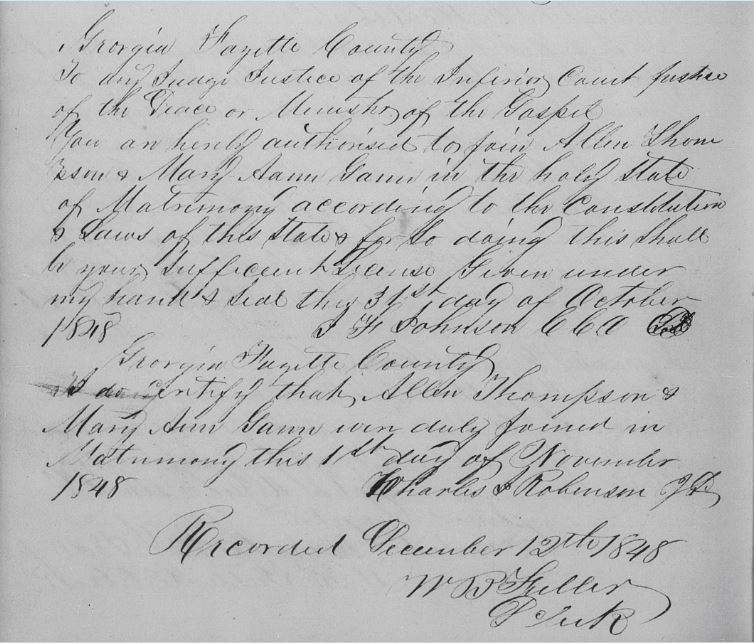 Georgia Fayette County
To any Judge Justice of the Inferior Court Justice
of the Peace or Minister of the Gospel
You are hereby authorised to join Allen Thom
pson & Mary Aann Gann in the holy State
of Matrimony according to the Constitution
& Laws of this State & for So doing this Shall
be your Sufficeent License Given under
my hand & Seal this 31st day of October
1848 Johnson CCO Seal
Georgia Fayette County
I do certify that Allen Thompson &
Mary Ann Gann were duly joined in
Matrimony this 1st day of November
1848 Charles Robinson JP
Recorded December 12th 1848
W B Fuller
Clerk